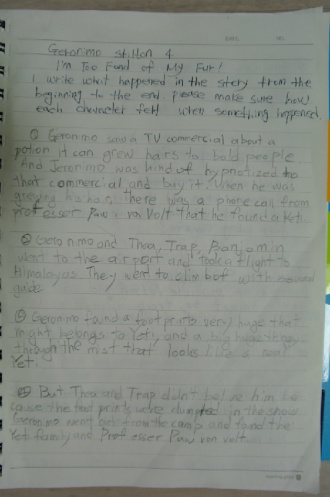 Geronimo stilton 4
I'm Too Fond of My Fur!
I write what happened in the story from the
beginning to the end. please make sure how
each character felt when something happened.
① Geronimo saw a TV commercial about a
potion it can grow hairs to bald people
And Jeronimo was kind of hypnotized to
that commercial and buy it. when he was
growing his hair, There was a phote call from
prof esser Paw von Volt that he found a Yeti.
② Geronimo and Thea, Trap, Banjamin
went to the airport and took a flight to
Himalayas They went to climb of with
guide
③ Geronimo found a foot prints very huge that
might belongs to Yeti, and a big huge thing
through the mist that looks like a
Yeti.
④ But Thea and Trap didn't belive him be
cause the foot prints were dumped in the snow
Geronimo went out from the camp and found the
Yeti family and Prof esser Paw von volt.